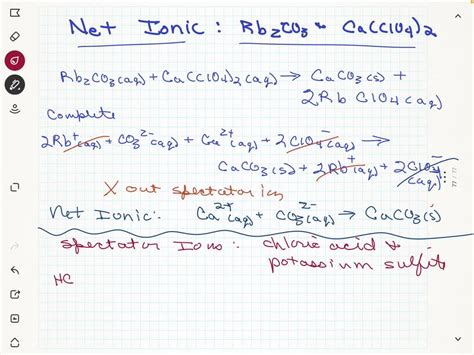 Net Ionic : Rb₂CO₃ & Ca(ClO₄)₂
Rb₂CO₃(aq) + Ca(ClO₄)₂(aq) → CaCO₃(s) +
2RbClO₄(aq)
Complete
2Rb⁺(aq) + CO₃²⁻(aq) + Ca²⁺(aq) + 2ClO₄⁻ →
CaCO₃(s) + 2Rb⁺(aq) + 2ClO₄⁻(aq)
X out spectator ions
Net Ionic: Ca²⁺(aq) + CO₃²⁻(aq) → CaCO₃(s)
Spectator Ions: chloric acid &
potassium sulfite
HC